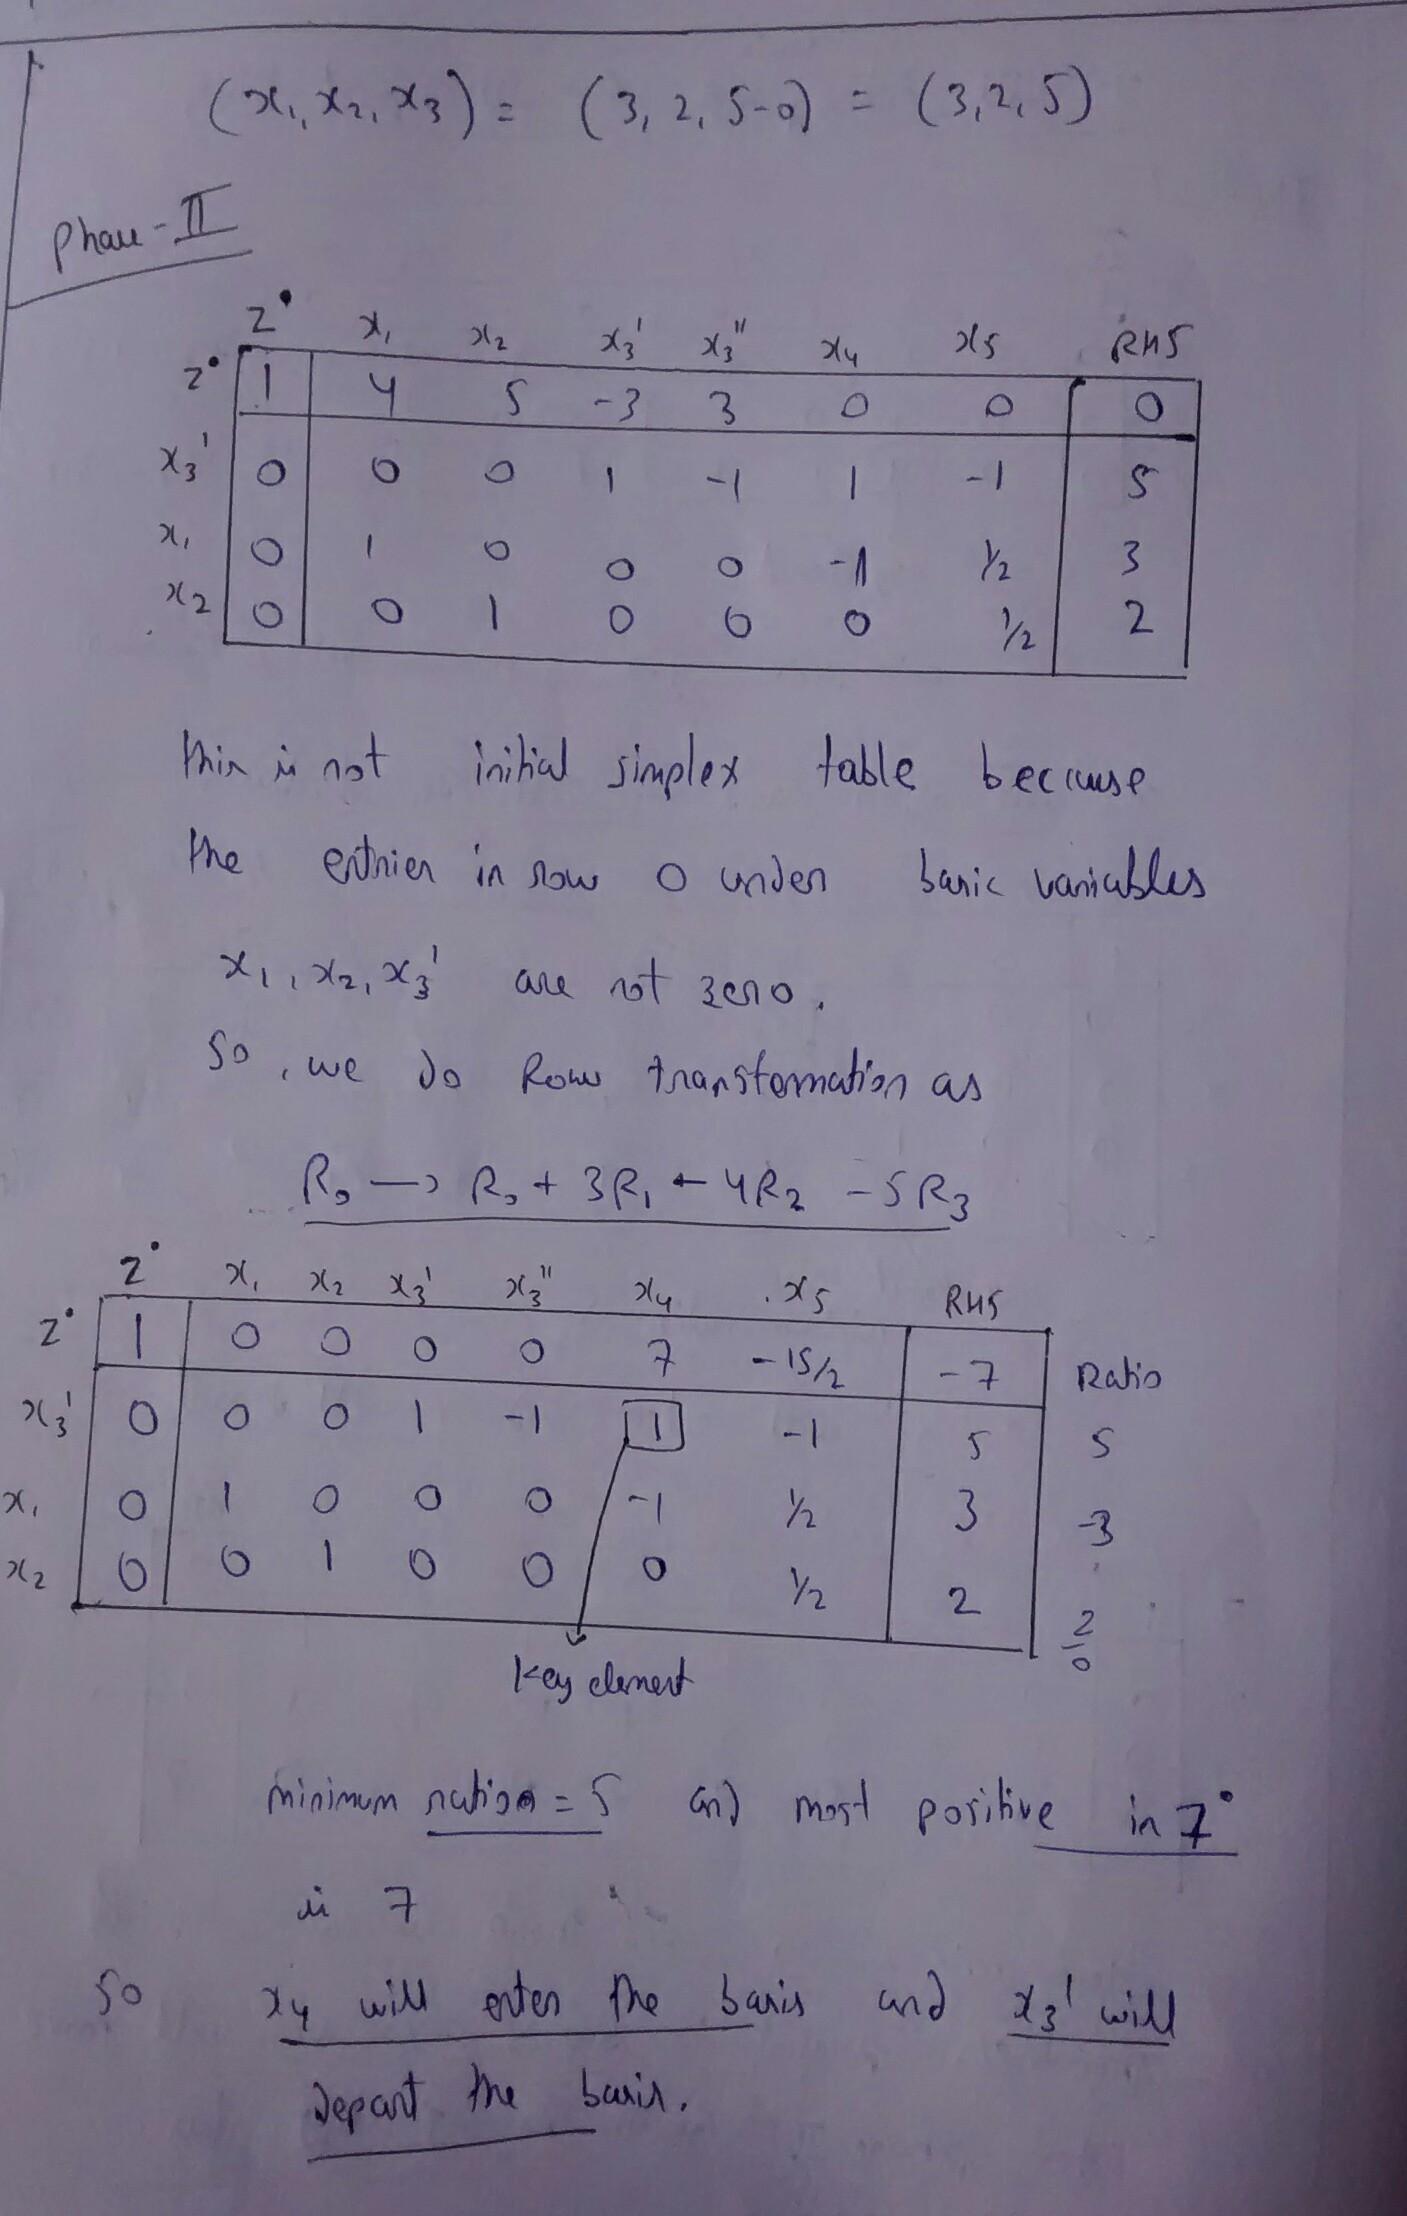 (x₁, x₂, x₃) = (3, 2, 5-0) = (3,2,5)
Phase-II
z° x₁ x₂ x₃' x₃'' x₄ x₅ RHS
z° 1 4 5 -3 3 0 0 0
x₃' 0 0 0 1 -1 1 -1 5
x₁ 0 1 0 0 0 -1 1/2 3
x₂ 0 0 1 0 0 0 1/2 2
this is not initial simplex table because
the entries in row 0 under basic variables
x₁, x₂, x₃' are not zero.
So, we do Row transformation as
R₀ → R₀ + 3R₁ - 4R₂ - 5R₃
z° x₁ x₂ x₃' x₃'' x₄ x₅ RHS
z° 1 0 0 0 0 7 -15/2 -7 Ratio
x₃' 0 0 0 1 -1 1 -1 5 5
x₁ 0 1 0 0 0 -1 1/2 3 -3
x₂ 0 0 1 0 0 0 1/2 2 2/0
Key element
minimum ration = 5 and most positive in z°
is 7
So x₄ will enter the basis and x₃' will
depart the basis.